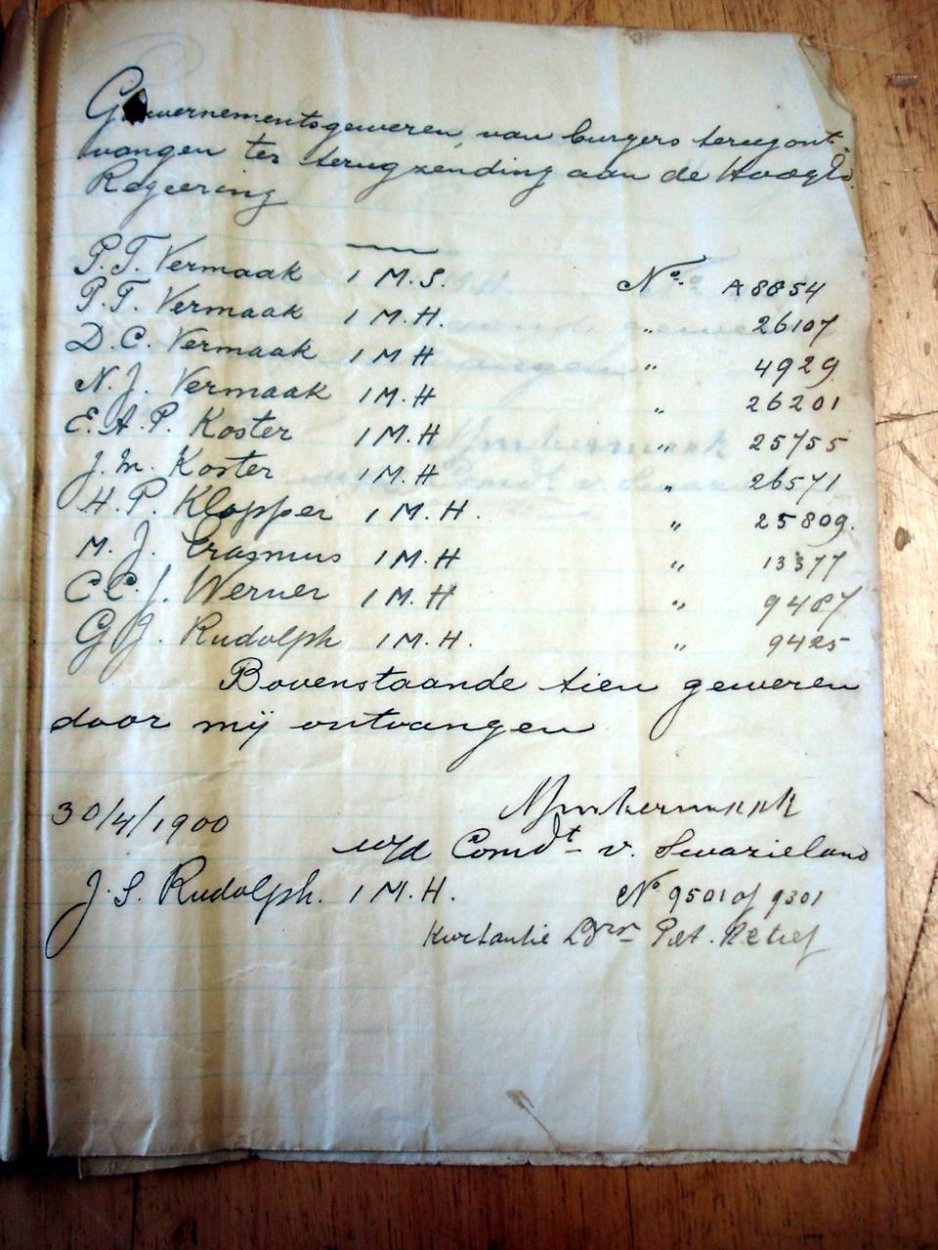 Gouvernementsgeweren van burgers terug ont-
vangen ter terugzending aan de HoogEd.
Regeering
P. T. Vermaak 1 M.S. No. A 8854
P. T. Vermaak 1 M.H. " 26107
D. C. Vermaak 1 M H " 4929
N. J. Vermaak 1 M. H " 26201
E. A. P. Koster 1 M. H " 25755
J. M. Koster 1 M. H " 26571
H. P. Klopper 1 M. H. " 25809.
M. J. Erasmus 1 M. H " 13377
C. C. J. Werner 1 M. H " 9487
G J. Rudolph 1 M. H. " 9425
Bovenstaande tien geweren
door mij ontvangen
30/4/1900
w/d Comdt v. Swazieland
J. S. Rudolph. 1 M. H. No 9501 of 9301
Kwitantie Piet. Retief